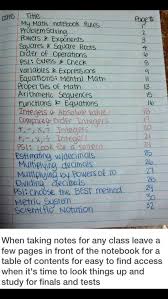 DATE Title Page #
My Math notebook Rules 1
Problem Solving 2
Powers & Exponents 3
Squares & Square Roots 4
Order of Operations 6
PSI: Guess & Check 8
Variables & Expressions 9
Equations: Mental Math 11
Properties of Math 13
Arithmetic Sequences
Functions & Equations 16
Integers & Absolute Value
Comparing & Order Integers
Integers
Integers
PSI: Look for a Pattern
Estimating w/Decimals 25
Multiplying Decimals 27
Multiplying by Powers of 10
Dividing Decimals
PSI: Choose the BEST method
Metric System
Scientific Notation
When taking notes for any class leave a
few pages in front of the notebook for a
table of contents for easy to find access
when it's time to look things up and
study for finals and tests